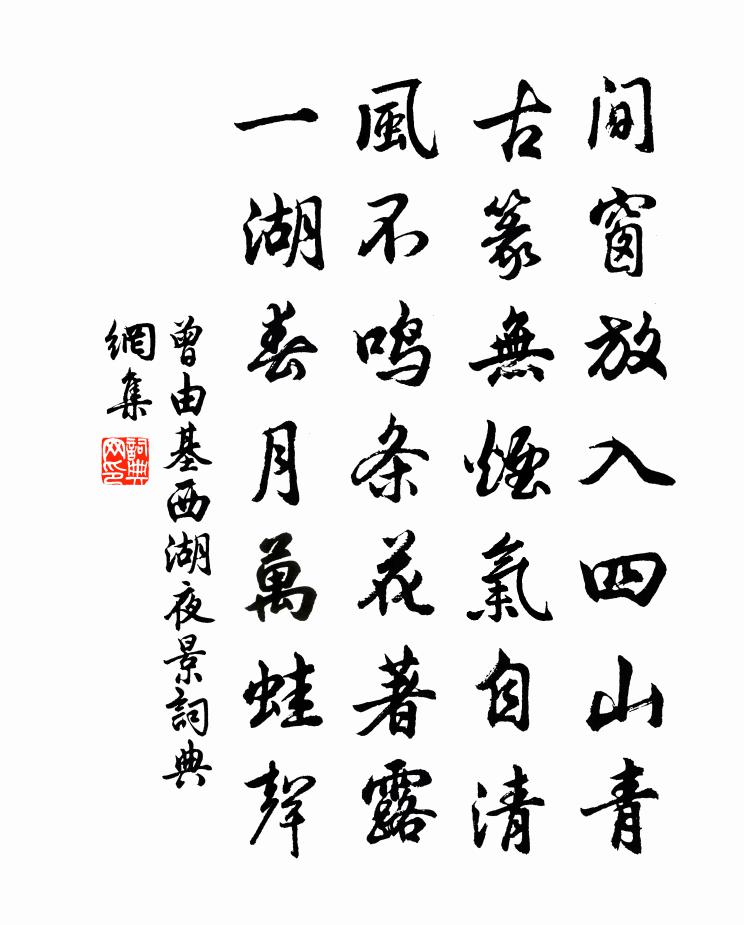 间窗放入四山青
古篆無煙氣自清
風不鸣条花著露
一湖春月萬蛙聲
曾由基西湖夜景詞典
網集
詞典
网印